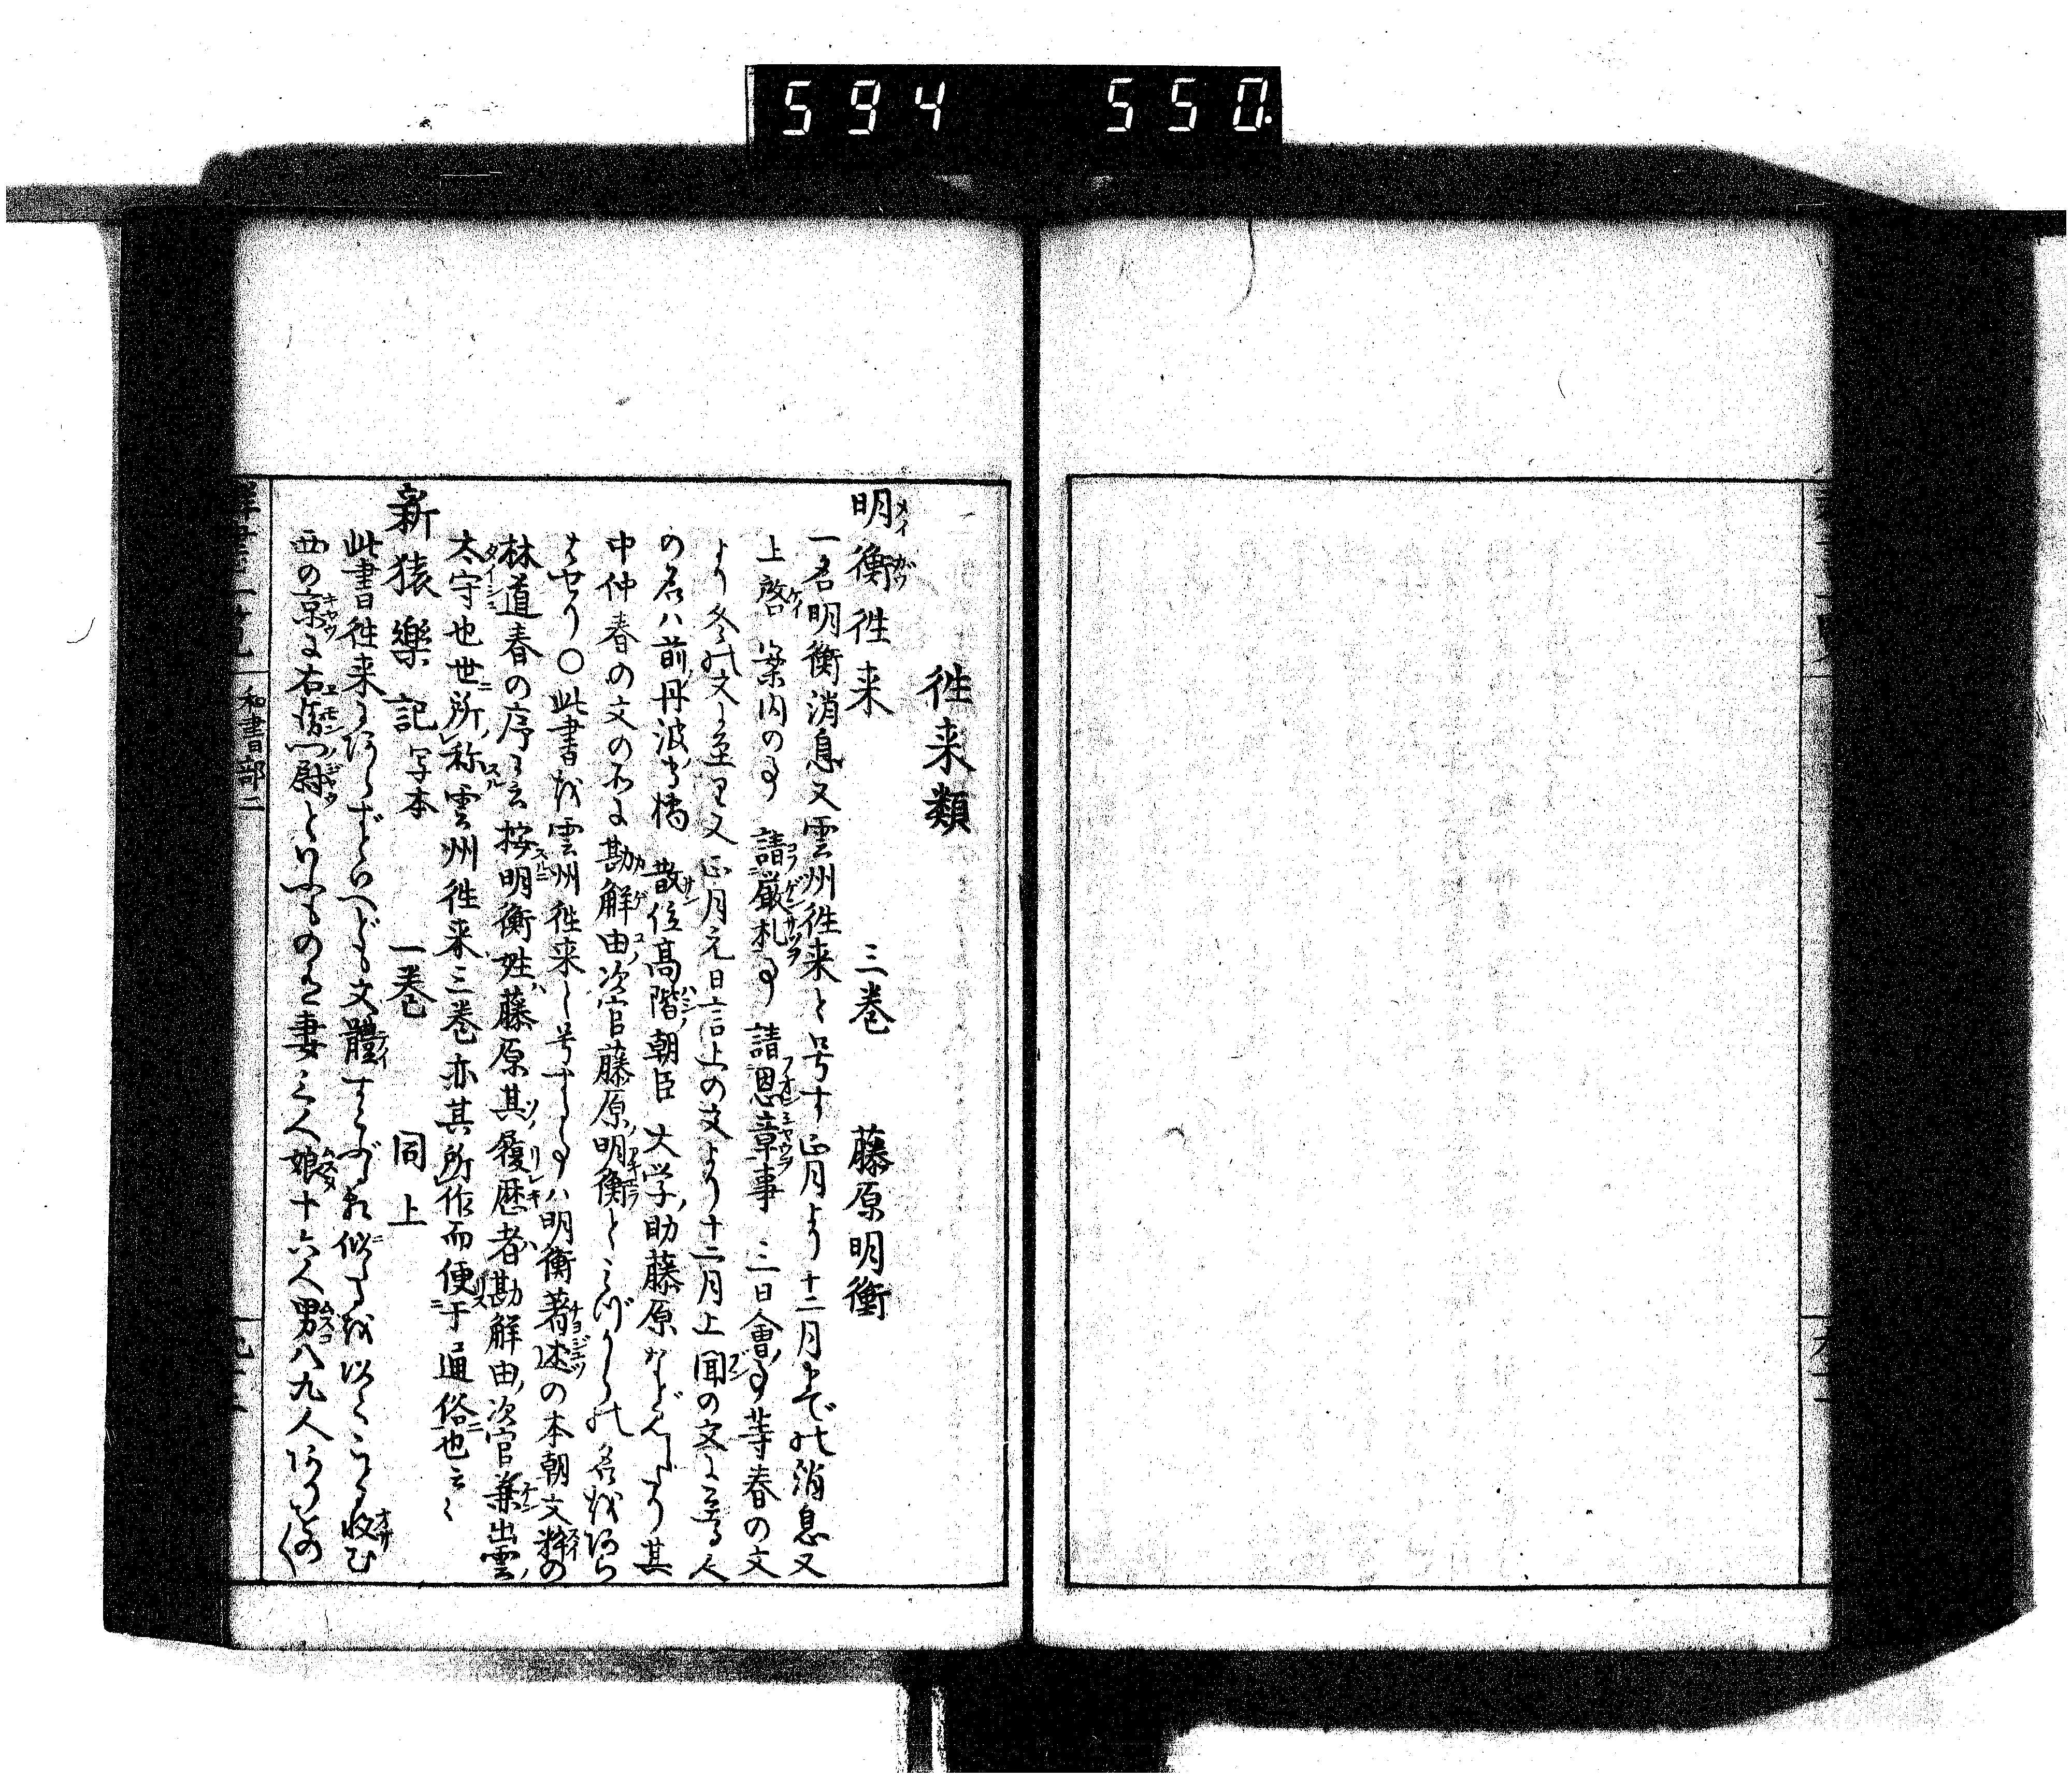 594 550.
徃来類
明衡徃来 三巻 藤原明衡
一名明衡消息又雲州徃来と号す正月より十二月までの消息又
上啓案内の事 請厳札事 請恩章事 三日會事等春の文
より冬の文に至り又正月元日言上の文より十二月上聞の文に至る人
の名ハ前丹波守橘 散位高階朝臣 大学助藤原などみえたり其
中仲春の文の下に勘解由次官藤原明衡とみづからの名をあら
はせり〇此書を雲州徃来と号する事ハ明衡著述の本朝文粋の
林道春の序に云按明衡姓藤原其履歴者勘解由次官兼出雲
太守也世所称雲州徃来三巻亦其所作而便于通俗也云〻
新猿樂記 写本 一巻 同上
此書徃来にあらずといへども文體すこぶる相似たるを以てこゝに收む
西の京に右衛門尉といふもの有妻三人娘十六人男八九人ありその
和書部二